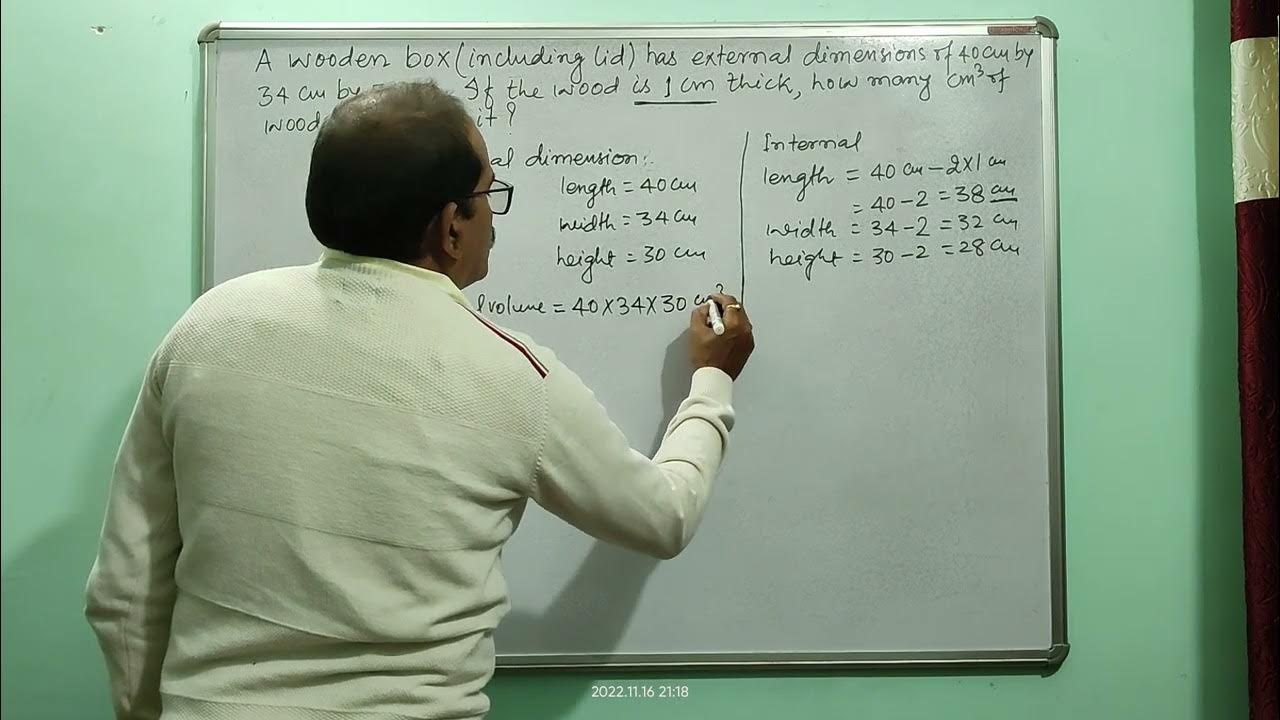 A wooden box (including lid) has external dimensions of 40 cm by
34 cm by If the wood is 1 cm thick, how many cm³ of
it?
dimension:
length = 40 cm
width = 34 cm
height = 30 cm
volume = 40 X 34 X 30 cm³
Internal
length = 40 cm - 2X1 cm
= 40 - 2 = 38 cm
width = 34 - 2 = 32 cm
height = 30 - 2 = 28 cm
2022.11.16 21:18